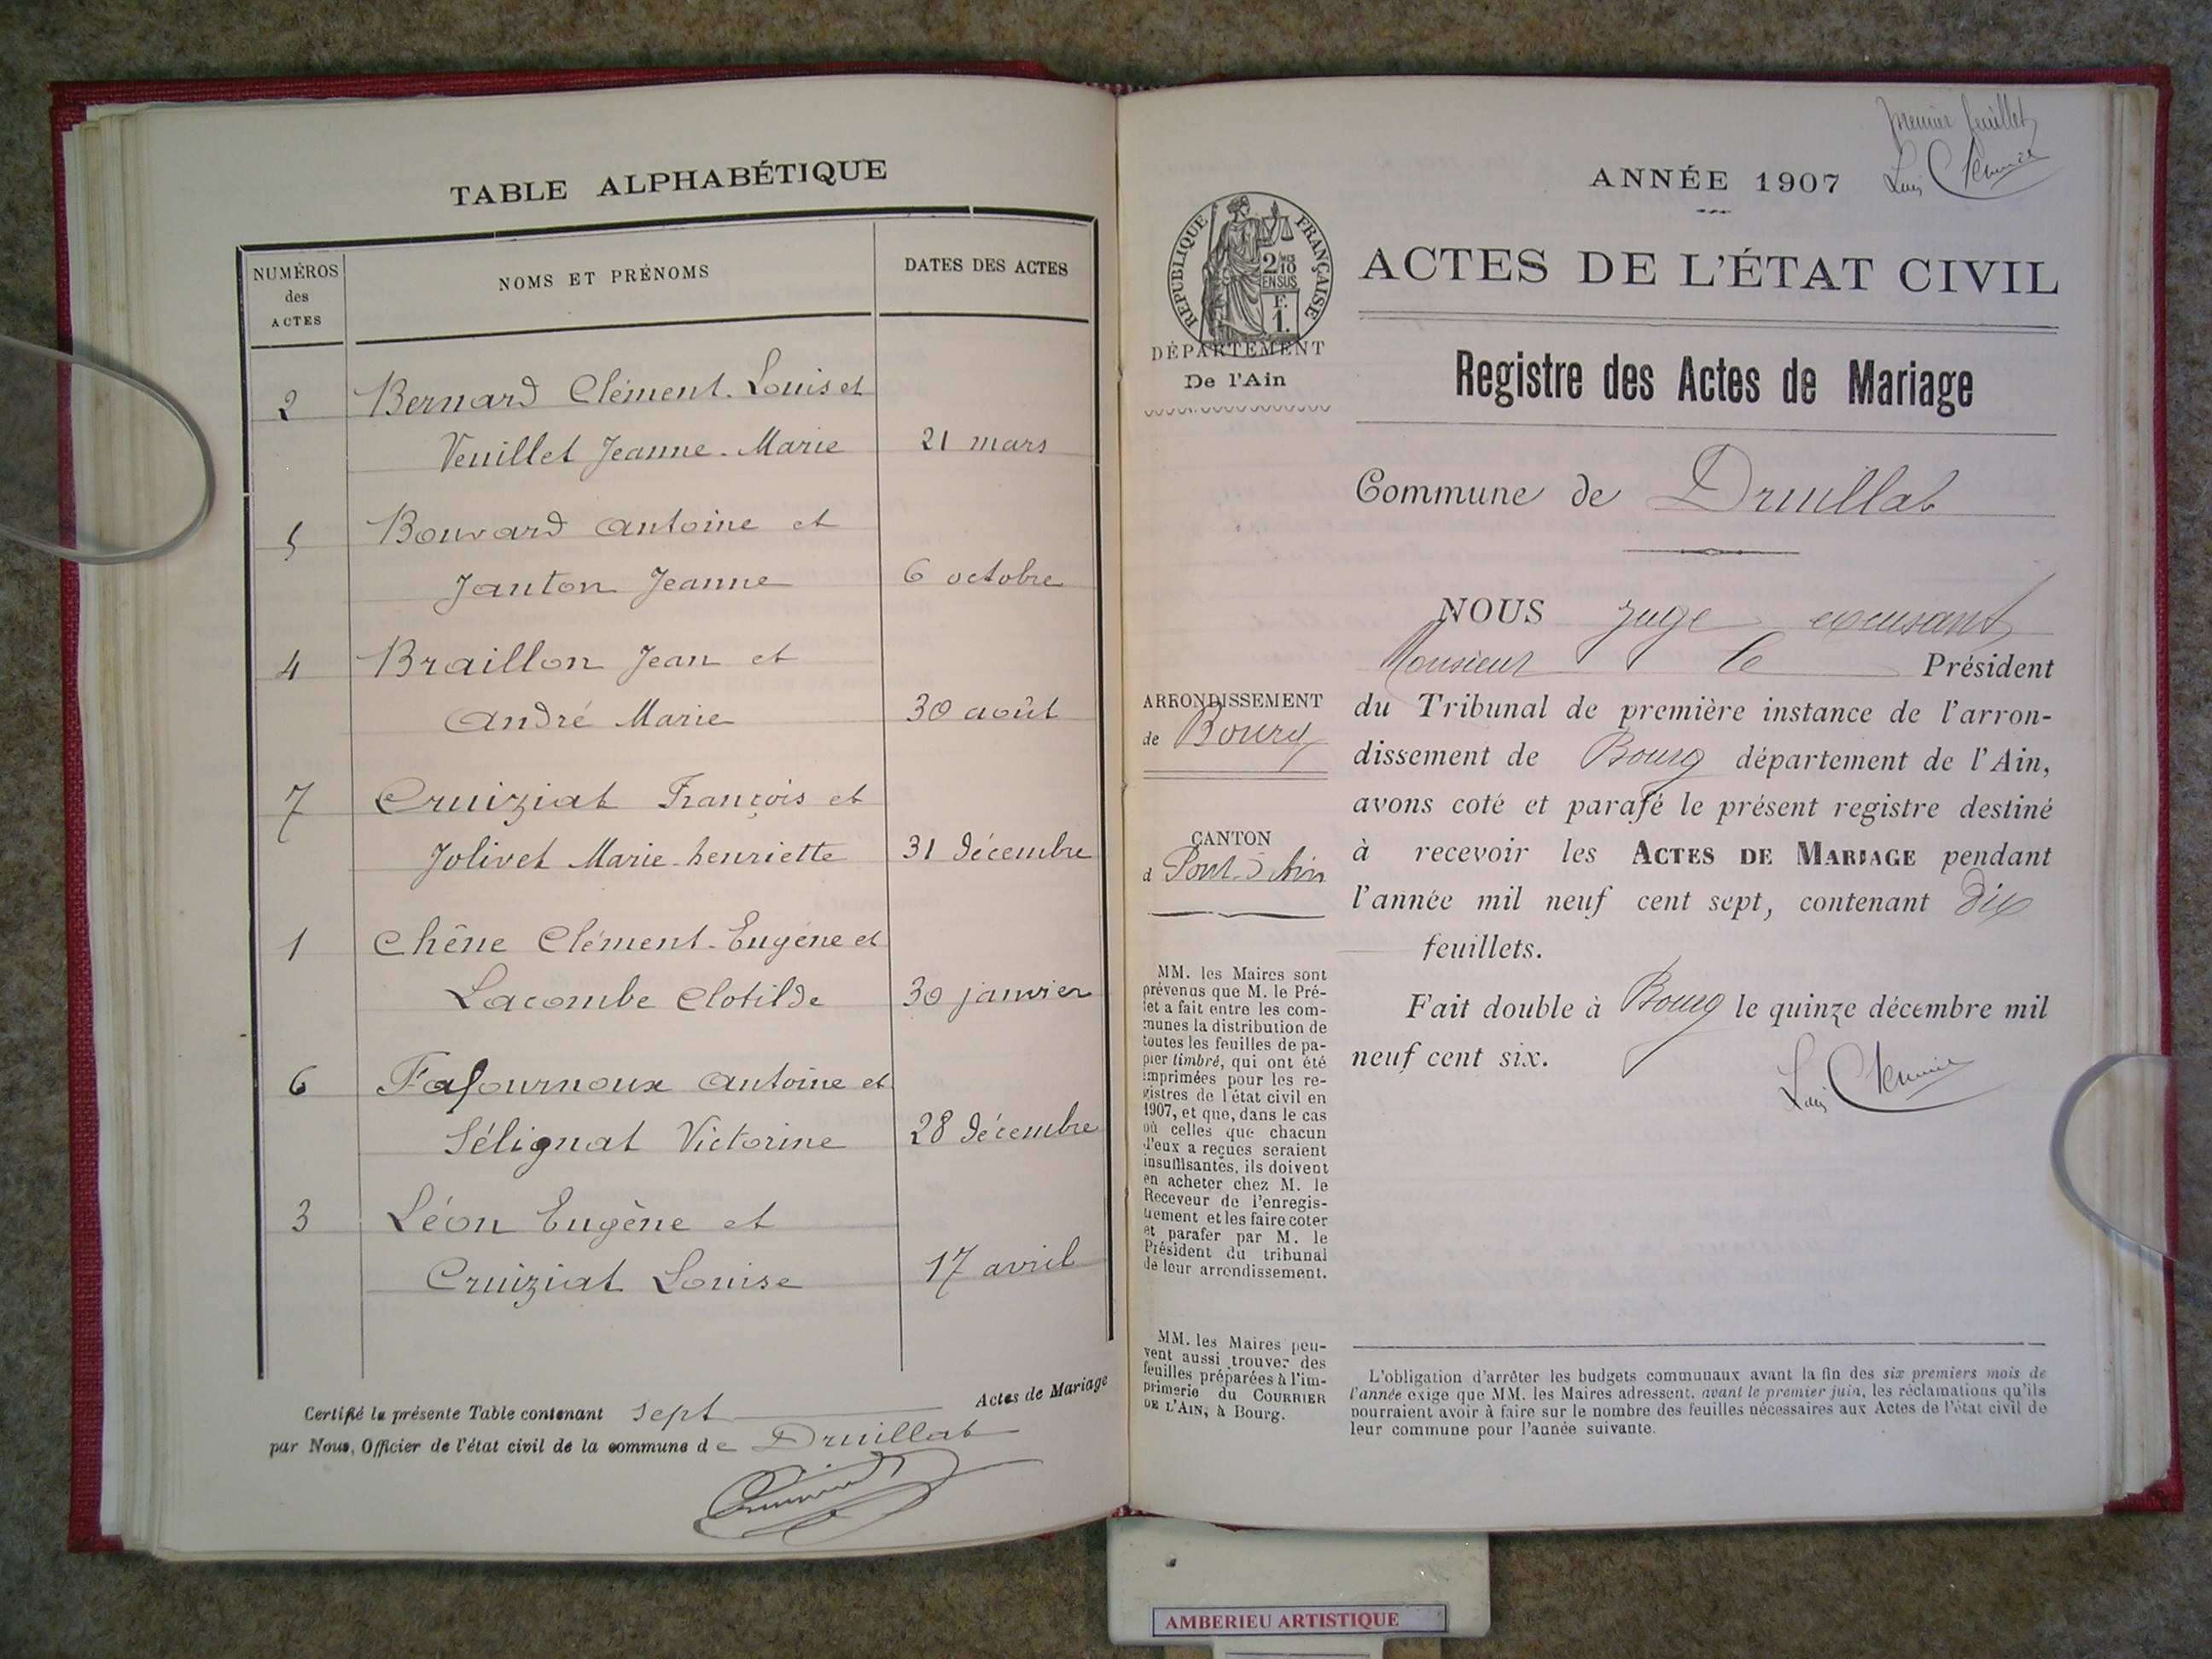 TABLE ALPHABÉTIQUE
NUMÉROS des ACTES
NOMS ET PRÉNOMS
DATES DES ACTES
2 Bernard Clément-Louis et
Veuillet Jeanne-Marie 21 mars
5 Bouvard Antoine et
Janton Jeanne 6 octobre
4 Braillon Jean et
André Marie 30 août
7 Cruiziat François et
Jolivet Marie-henriette 31 décembre
1 Chêne Clément-Eugène et
Lacombe Clotilde 30 janvier
6 Fafournoux Antoine et
Sélignat Victorine 28 décembre
3 Léon Eugène et
Cruiziat Louise 17 avril
Certifié la présente Table contenant sept Actes de Mariage
par Nous, Officier de l'état civil de la commune de Druillat
premier feuillet
ANNÉE 1907
RÉPUBLIQUE FRANÇAISE
2/10 EN SUS
F. 1.
DÉPARTEMENT
De l'Ain
ACTES DE L'ÉTAT CIVIL
Registre des Actes de Mariage
Commune de Druillat
NOUS juge excusant
Monsieur le Président
du Tribunal de première instance de l'arron-
dissement de Bourg département de l'Ain,
avons coté et parafé le présent registre destiné
à recevoir les ACTES DE MARIAGE pendant
l'année mil neuf cent sept, contenant dix
feuillets.
Fait double à Bourg le quinze décembre mil
neuf cent six.
ARRONDISSEMENT
de Bourg
CANTON
d Pont-d'Ain
MM. les Maires sont
prévenus que M. le Pré-
fet a fait entre les com-
munes la distribution de
toutes les feuilles de pa-
pier timbré, qui ont été
imprimées pour les re-
gistres de l'état civil en
1907, et que, dans le cas
où celles que chacun
d'eux a reçues seraient
insuffisantes, ils doivent
en acheter chez M. le
Receveur de l'enregis-
trement et les faire coter
et parafer par M. le
Président du tribunal
de leur arrondissement.
MM. les Maires peu-
vent aussi trouver des
feuilles préparées à l'im-
primerie du COURRIER
DE L'AIN, à Bourg.
L'obligation d'arrêter les budgets communaux avant la fin des six premiers mois de
l'année exige que MM. les Maires adressent, avant le premier juin, les réclamations qu'ils
pourraient avoir à faire sur le nombre des feuilles nécessaires aux Actes de l'état civil de
leur commune pour l'année suivante.
AMBERIEU ARTISTIQUE